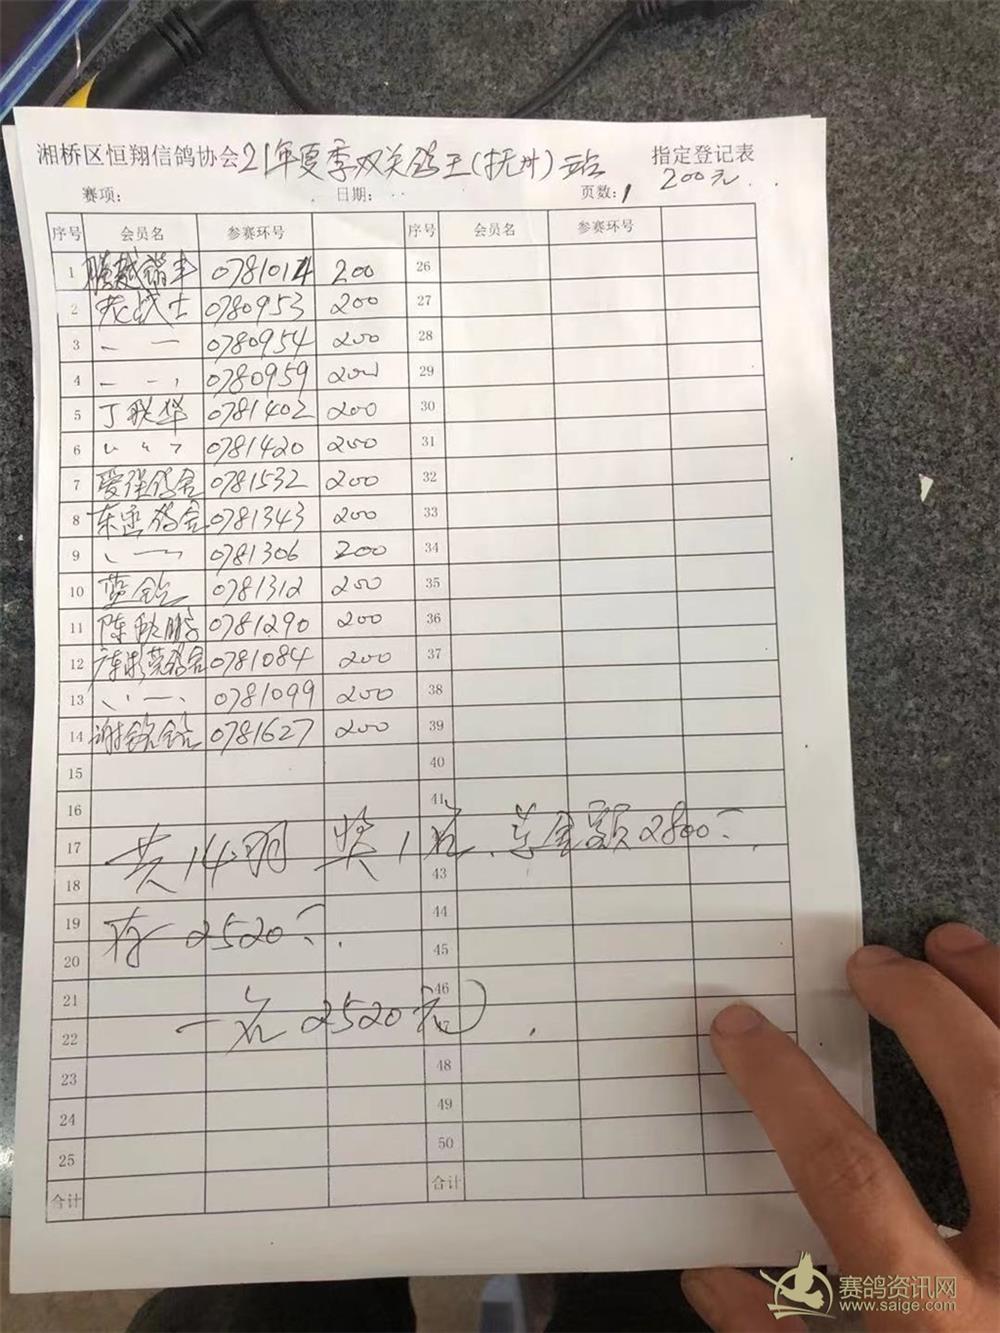 湘桥区恒翔信鸽协会21年夏季双关鸽王(抚州)站 指定登记表
200元
赛项: 日期: 页数:1
序号 会员名 参赛环号 序号 会员名 参赛环号
1 腾越翔丰 0781014 200 26
2 老战士 0780953 200 27
3 0780954 200 28
4 0780959 200 29
5 丁联华 0781402 200 30
6 0781420 200 31
7 爱强鸽舍 0781532 200 32
8 东遥鸽舍 0781343 200 33
9 0781306 200 34
10 蓝 0781312 200 35
11 陈 鹏 0781290 200 36
12 鸽舍 0781084 200 37
13 0781099 200 38
14 谢 0781627 200 39
15 40
16 41
17 共14羽 奖1名、总金额2800元
18 43
19 存一2520元. 44
20 45
21 46
22 一名2520元
23 48
24 49
25 50
合计 合计
赛鸽资讯网
www.saige.com